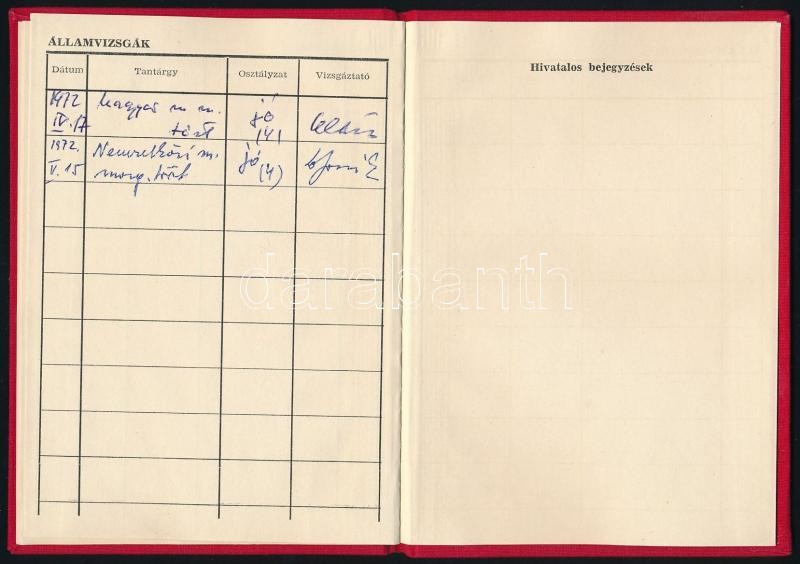 ÁLLAMVIZSGÁK
Dátum Tantárgy Osztályzat Vizsgáztató
1972 Magyar m. m. jó
IV. 17 tört (4)
1972. Nemzetközi m. jó
V. 15 mozg. tört (4)
Hivatalos bejegyzések
darabanth